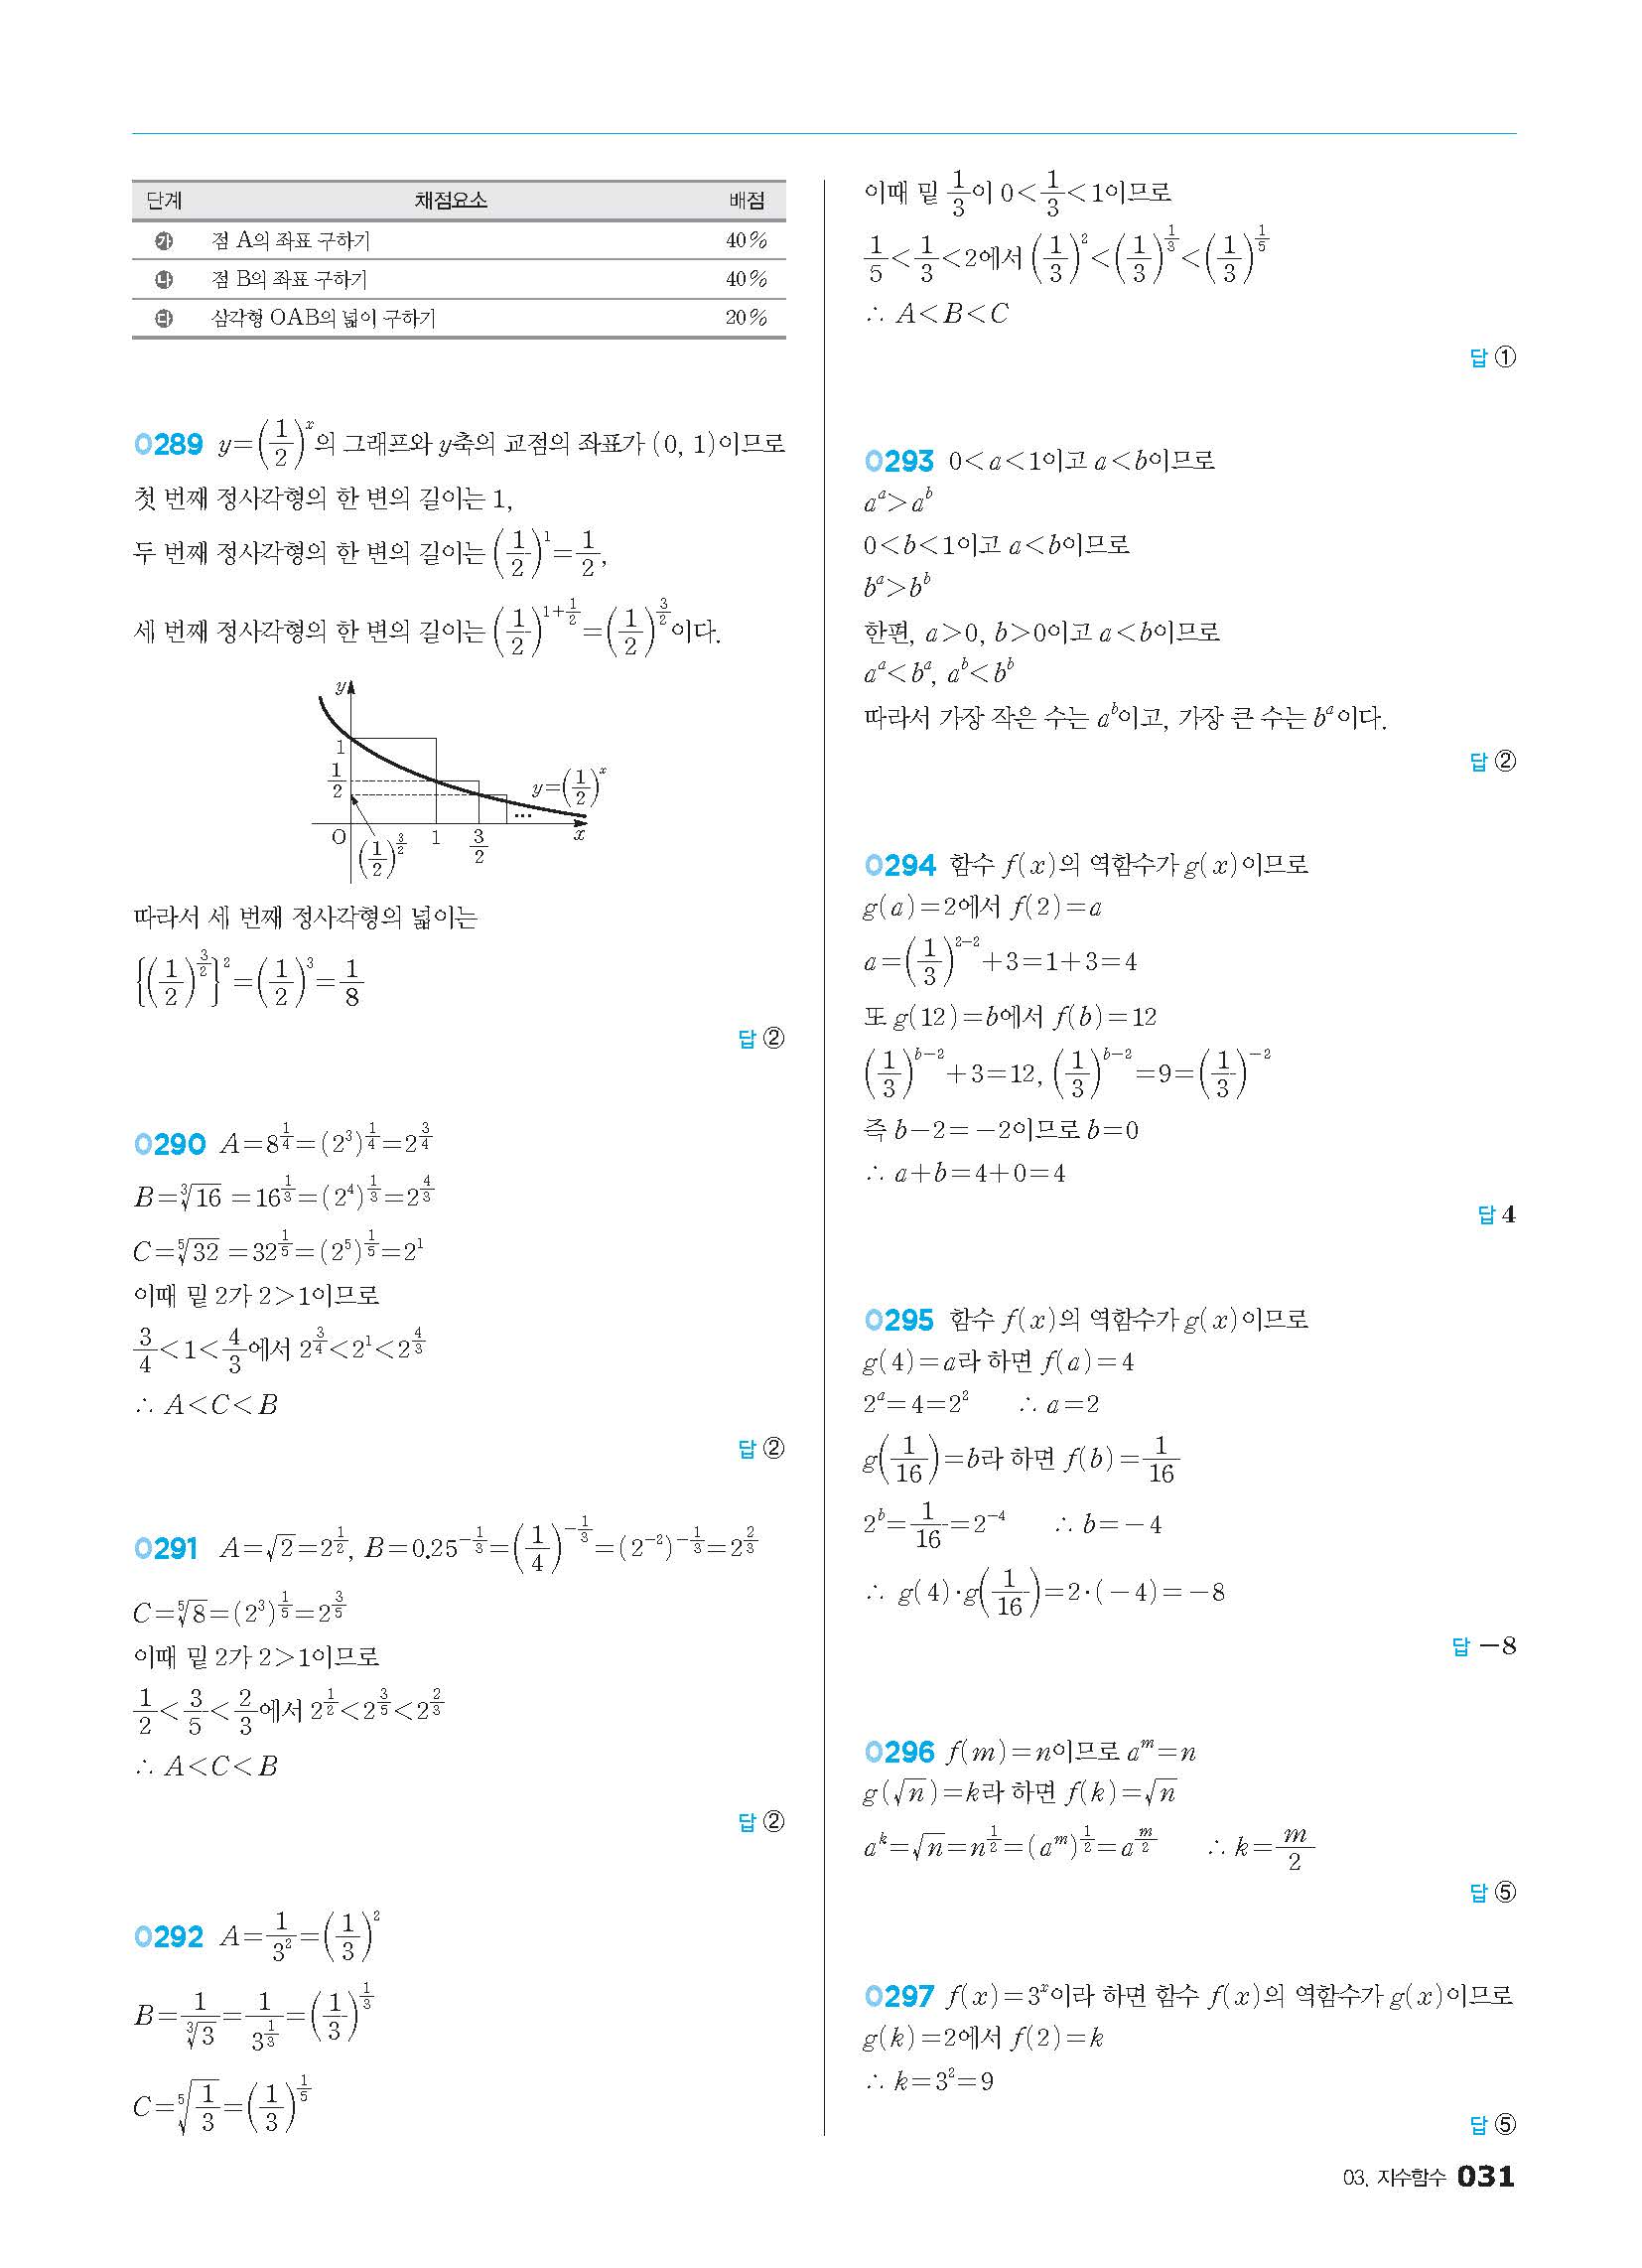 단계 채점요소 배점
㉮ 점 A의 좌표 구하기 40%
㉯ 점 B의 좌표 구하기 40%
㉰ 삼각형 OAB의 넓이 구하기 20%
0289 y=(1/2)^x의 그래프와 y축의 교점의 좌표가 (0, 1)이므로
첫 번째 정사각형의 한 변의 길이는 1,
두 번째 정사각형의 한 변의 길이는 (1/2)^1=1/2,
세 번째 정사각형의 한 변의 길이는 (1/2)^(1+1/2)=(1/2)^(3/2)이다.
y
1
1/2
y=(1/2)^x
...
O 1 3/2 x
(1/2)^(3/2)
따라서 세 번째 정사각형의 넓이는
{(1/2)^(3/2)}^2=(1/2)^3=1/8
답 ②
0290 A=8^(1/4)=(2^3)^(1/4)=2^(3/4)
B=∛16=16^(1/3)=(2^4)^(1/3)=2^(4/3)
C=⁵√32=32^(1/5)=(2^5)^(1/5)=2^1
이때 밑 2가 2>1이므로
3/4<1<4/3에서 2^(3/4)<2^1<2^(4/3)
∴ A<C<B
답 ②
0291 A=√2=2^(1/2), B=0.25^(-1/3)=(1/4)^(-1/3)=(2^(-2))^(-1/3)=2^(2/3)
C=⁵√8=(2^3)^(1/5)=2^(3/5)
이때 밑 2가 2>1이므로
1/2<3/5<2/3에서 2^(1/2)<2^(3/5)<2^(2/3)
∴ A<C<B
답 ②
0292 A=1/3^2=(1/3)^2
B=1/∛3=1/3^(1/3)=(1/3)^(1/3)
C=⁵√(1/3)=(1/3)^(1/5)
이때 밑 1/3이 0<1/3<1이므로
1/5<1/3<2에서 (1/3)^2<(1/3)^(1/3)<(1/3)^(1/5)
∴ A<B<C
답 ①
0293 0<a<1이고 a<b이므로
a^a>a^b
0<b<1이고 a<b이므로
b^a>b^b
한편, a>0, b>0이고 a<b이므로
a^a<b^a, a^b<b^b
따라서 가장 작은 수는 a^b이고, 가장 큰 수는 b^a이다.
답 ②
0294 함수 f(x)의 역함수가 g(x)이므로
g(a)=2에서 f(2)=a
a=(1/3)^(2-2)+3=1+3=4
또 g(12)=b에서 f(b)=12
(1/3)^(b-2)+3=12, (1/3)^(b-2)=9=(1/3)^(-2)
즉 b-2=-2이므로 b=0
∴ a+b=4+0=4
답 4
0295 함수 f(x)의 역함수가 g(x)이므로
g(4)=a라 하면 f(a)=4
2^a=4=2^2 ∴ a=2
g(1/16)=b라 하면 f(b)=1/16
2^b=1/16=2^(-4) ∴ b=-4
∴ g(4)·g(1/16)=2·(-4)=-8
답 -8
0296 f(m)=n이므로 a^m=n
g(√n)=k라 하면 f(k)=√n
a^k=√n=n^(1/2)=(a^m)^(1/2)=a^(m/2) ∴ k=m/2
답 ⑤
0297 f(x)=3^x이라 하면 함수 f(x)의 역함수가 g(x)이므로
g(k)=2에서 f(2)=k
∴ k=3^2=9
답 ⑤
03. 지수함수 031